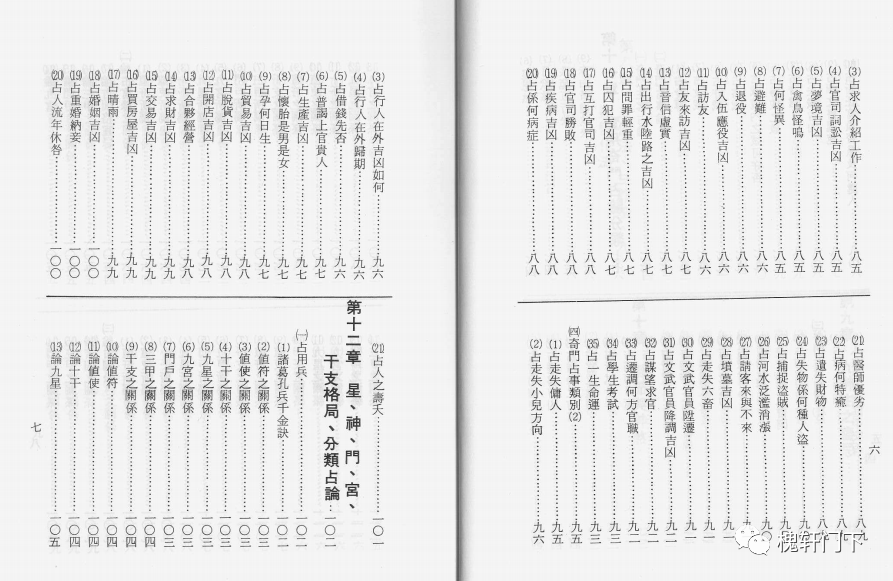 (3)占求人介紹工作……八五
(4)占官司詞訟吉凶……八五
(5)占夢境吉凶……八五
(6)占禽鳥怪鳴……八五
(7)占何怪異……八五
(8)占避難……八六
(9)占退役……八六
(10)占入伍應役吉凶……八六
(11)占訪友……八六
(12)占友來訪吉凶……八七
(13)占音信虛實……八七
(14)占出行水陸路之吉凶……八七
(15)占問罪輕重……八七
(16)占囚犯吉凶……八七
(17)占互打官司吉凶……八八
(18)占官司勝敗……八八
(19)占疾病吉凶……八八
(20)占係何病症……八八
(21)占醫師優劣……八九
(22)占病何特癒……八九
(23)占遺失財物……八九
(24)占失物係何種人盜……
(25)占捕捉盜賊……
(26)占河水泛濫消漲……
(27)占請客來與不來……
(28)占墳墓吉凶……九一
(29)占走失六畜……九一
(30)占文武官員陞遷……九一
(31)占文武官員降調吉凶……九二
(32)占謀望求官……九二
(33)占遷調何方官職……九二
(34)占學生考試……九三
(35)占一生命運……九三
㈣奇門占事類別(2)……九五
(1)占走失傭人……九五
(2)占走失小兒方向……九六
六
(3)占行人在外吉凶如何……九六
(4)占行人在外歸期……九六
(5)占借錢先否……九六
(6)占普謁上官貴人……九七
(7)占生產吉凶……九七
(8)占懷胎是男是女……九七
(9)占孕何日生……九七
(10)占貿易吉凶……九八
(11)占脫貨吉凶……九八
(12)占開店吉凶……九八
(13)占合夥經營……九八
(14)占求財吉凶……九九
(15)占交易吉凶……九九
(16)占買房屋吉凶……九九
(17)占晴雨……九九
(18)占婚姻吉凶……一〇〇
(19)占重婚納妾……一〇〇
(20)占人流年休咎……一〇〇
(21)占人之壽夭……一〇一
第十二章 星、神、門、宮、
干支格局、分類占論……一〇二
㈠占用兵……一〇二
(1)諸葛孔兵千金訣……一〇二
(2)值符之關係……一〇三
(3)值使之關係……一〇三
(4)十干之關係……一〇三
(5)九星之關係……一〇三
(6)九宮之關係……一〇三
(7)門戶之關係……一〇三
(8)三甲之關係……一〇四
(9)干支之關係……一〇四
(10)論值符……一〇四
(11)論值使……一〇四
(12)論十干……一〇四
(13)論九星……一〇五
七
槐轩门下